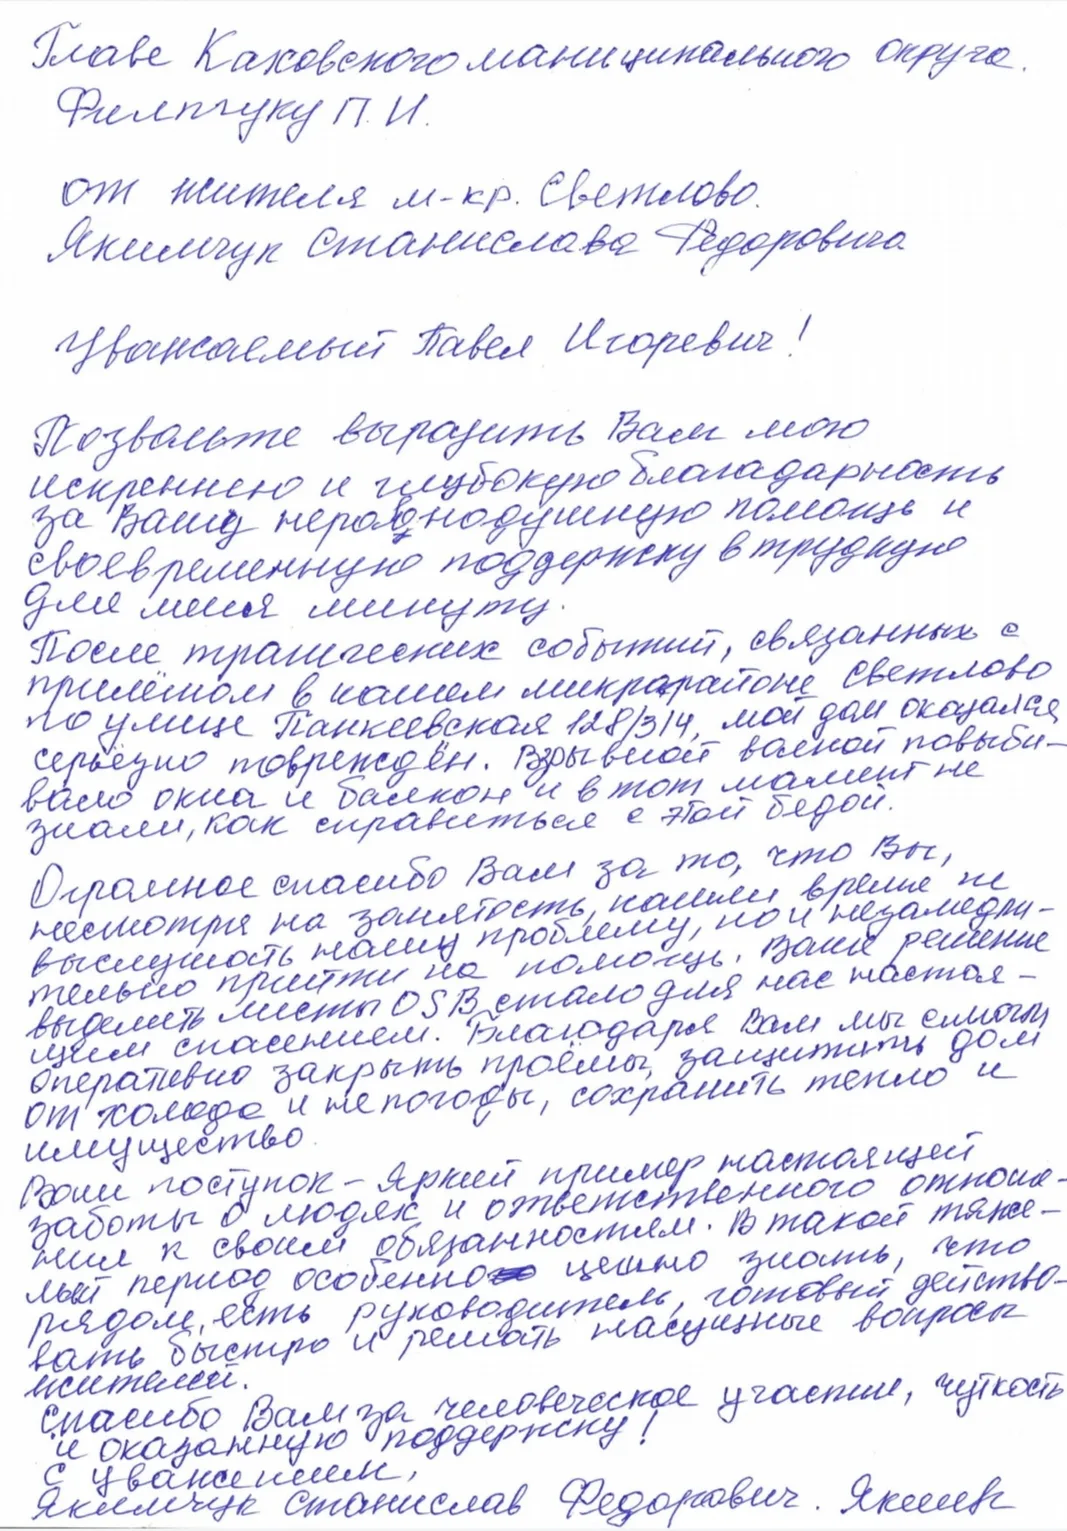 Главе Каховского муниципального округа.
Филипчуку П.И.
от жителя м-кр. Светлово.
Якимчук Станислава Федоровича
Уважаемый Павел Игоревич!
Позвольте выразить Вам мою
искреннюю и глубокую благодарность
за Вашу неравнодушную помощь и
своевременную поддержку в трудную
для меня минуту.
После трагических событий, связанных с
прилётом в нашем микрорайоне Светлово
по улице Панкеевская 128/314, мой дом оказался
серьёзно повреждён. Взрывной волной повыби-
вало окна и балкон и в тот момент не
знали, как справиться с этой бедой.
Огромное спасибо Вам за то, что Вы,
несмотря на занятость, нашли время не
выслушать нашу проблему, но и незамедли-
тельно прийти на помощь. Ваше решение
выделить листы OSB стало для нас настоя-
щим спасением. Благодаря Вам мы смогли
оперативно закрыть проёмы, защитить дом
от холода и непогоды, сохранить тепло и
имущество.
Ваш поступок – яркий пример настоящей
заботы о людях и ответственного отноше-
ния к своим обязанностям. В такой тяже-
лый период особенно ценно знать, что
рядом есть руководитель, готовый действо-
вать быстро и решать насущные вопросы
жителей.
Спасибо Вам за человеческое участие, чуткость
и оказанную поддержку!
С уважением,
Якимчук Станислав Федорович. Якимч